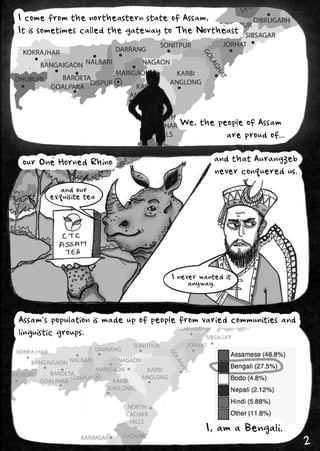 I come from the northeastern state of Assam,
It is sometimes called the gateway to The Northeast
DIBRUGARH
SIBSAGAR
SONITPUR
JORHAT
DARRANG
GOLAGHAT
KOKRAJHAR
NALBARI
NAGAON
BANGAIGAON
MARIGAON
KARBI
ANGLONG
DHUBURI
BARPETA
DISPUR
GOALPARA
We, the people of Assam
are proud of...
our One Horned Rhino
and our
exquisite tea
CTC
ASSAM
TEA
and that Aurangzeb
never conquered us.
I never wanted it
anyway.
Assam's population is made up of people from varied communities and
linguistic groups.
SIBSAGAR
SONITPUR
JORHAT
DARRANG
KOKRAJHAR
NALBARI
NAGAON
BANGAIGAON
MARIGAON
KARBI
ANGLONG
BARPETA
DISPUR
GOALPARA
KARBI
ANGLONG
NORTH
CACHAR
HILLS
KARIMGANJ
CACHAR
Assamese (48.8%)
Bengali (27.5%)
Bodo (4.8%)
Nepali (2.12%)
Hindi (5.88%)
Other (11.8%)
I, am a Bengali.
2